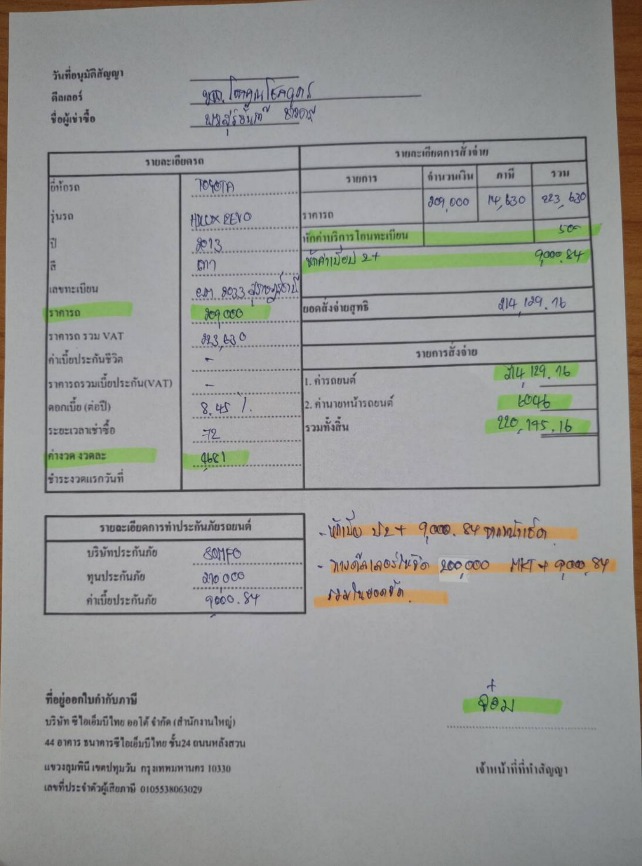 วันที่อนุมัติสัญญา
ดีลเลอร์
ชื่อผู้เช่าซื้อ
รายละเอียดรถ
ยี่ห้อรถ TOYOTA
รุ่นรถ HILUX REVO
ปี 2013
สี เทา
เลขทะเบียน 2033 สุราษฎร์ธานี
ราคารถ 209,000
ราคารถ รวม VAT 223,630
ค่าเบี้ยประกันชีวิต -
ราคารถรวมเบี้ยประกัน(VAT) -
ดอกเบี้ย (ต่อปี) 8.45 %
ระยะเวลาเช่าซื้อ 72
ค่างวด งวดละ 4681
ชำระงวดแรกวันที่
รายละเอียดการสั่งจ่าย
รายการ จำนวนเงิน ภาษี รวม
ราคารถ 209,000 14,630 223,630
หักค่าบริการโอนทะเบียน 500
หักค่าเบี้ย ป 2+ 9,000.84
ยอดสั่งจ่ายสุทธิ 214,129.16
รายการสั่งจ่าย
1. ค่ารถยนต์ 214,129.16
2. ค่านายหน้ารถยนต์ 6046
รวมทั้งสิ้น 220,175.16
รายละเอียดการทำประกันภัยรถยนต์
บริษัทประกันภัย SOMPO
ทุนประกันภัย 210,000
ค่าเบี้ยประกันภัย 9,000.84
- หักเบี้ย ป 2+ 9,000.84 จากหน้าเช็ค
- ทางดีลเลอร์ 200,000 MKT + 9,000.84
รวมในยอดจัด
ที่อยู่ออกใบกำกับภาษี
บริษัท ซีไอเอ็มบีไทย ออโต้ จำกัด (สำนักงานใหญ่)
44 อาคาร ธนาคารซีไอเอ็มบีไทย ชั้น24 ถนนหลังสวน
แขวงลุมพินี เขตปทุมวัน กรุงเทพมหานคร 10330
เลขที่ประจำตัวผู้เสียภาษี 0105538063029
จ๋อม
เจ้าหน้าที่ที่ทำสัญญา